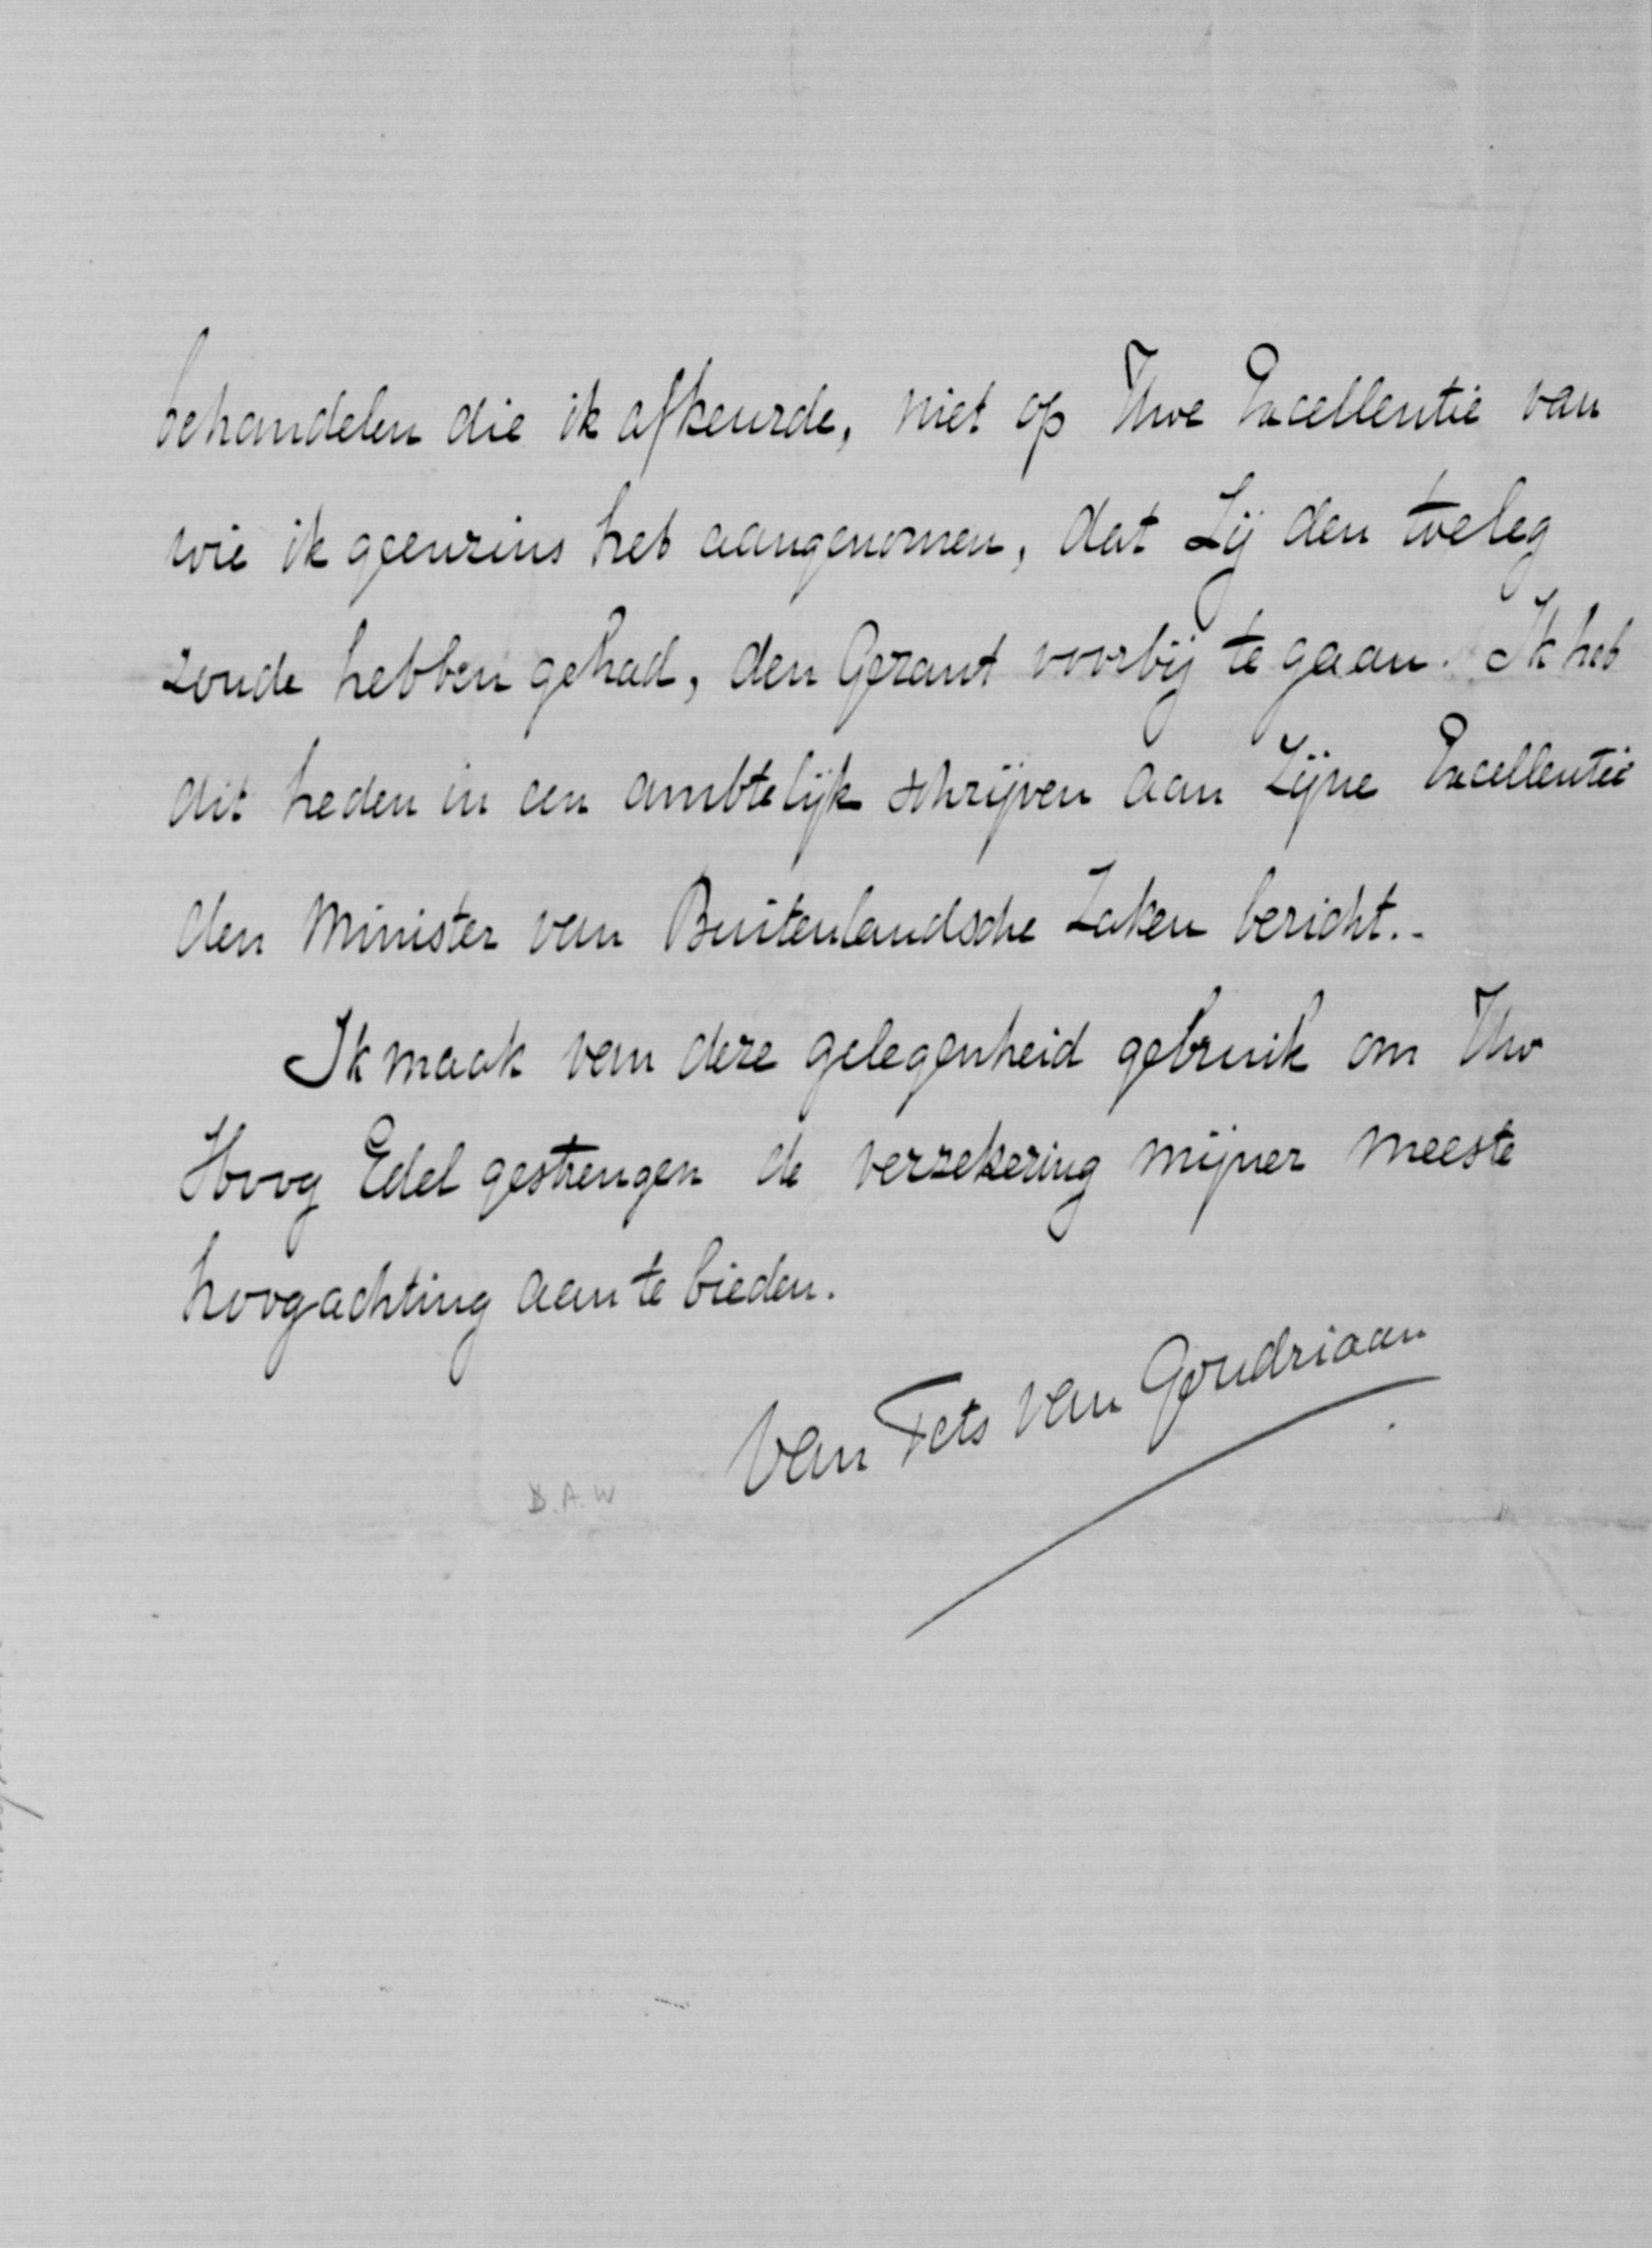 behandelen die ik afkeurde, niet op Uwe Excellentie van
wie ik geenzins heb aangenomen, dat Zij den toeleg
zoude hebben gehad, den Gerant voorbij te gaan. Ik heb
dit heden in een ambtelijk schrijven aan Zijne Excellentie
den Minister van Buitenlandsche Zaken bericht.-
Ik maak van deze gelegenheid gebruik om Uw
Hoog Edel gestrengen de verzekering mijner meeste
hoogachting aan te bieden.
Van Tets van Goudriaan
B.A.W